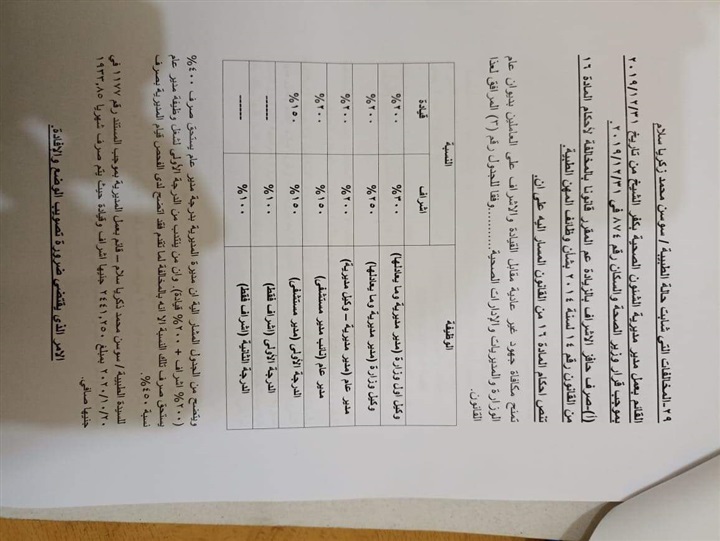 ٢٩-المخالفات التى شابت حالة الطبيبة / سوسن محمد زكريا سلام
القائم بعمل مدير مديرية الشئون الصحية بكفر الشيخ من تاريخ ٢٠١٩/١٢/٣١
بموجب قرار وزير الصحة والسكان رقم ٨٧٤ فى ٢٠١٩/١٢/٣١.
(أ)-صرف حافز الاشراف بالزيادة عم المقرر قانونا بالمخالفة لأحكام المادة ١٦
من القانون رقم ١٤ لسنة ٢٠١٤ بشان وظائف المهن الطبية
تنص احكام المادة ١٦ من القانون المسار اليه على ان.
تمنح مكافاة جهود غير عادية مقابل القيادة والاشراف على العاملين بديوان عام
الوزارة والمديريات والادارات الصحية............وفقا للجدول رقم (٢) المرافق لهذا
القانون.
الوظيفة النسبة
اشراف قيادة
وكيل اول وزارة (مدير مديرية وما يعادلها) ٣٠٠% ٢٠٠%
وكيل وزارة (مدير مديرية وما يعادلها) ٢٥٠% ٢٠١%
مدير عام (مدير مديرية – وكيل مديرية) ٢٠٠% ٢٠٠%
مدير عام (نائب مدير مستشفى) ١٥٠% ٢٠٠%
الدرجة الأولى (مدير مستشفى) ١٥٠% ١٥٠%
الدرجة الأولى (اشراف فقط) ١٠٠% ------
الدرجة الثانية (اشراف فقط) ١٠٠% ------
ويتضح من الجدول المشار الية ان مديرة المديرية بدرجة مدير عام يستحق صرف ٤٠٠%
(٢٠٠% اشراف + ٢٠٠% قيادة). وان من ينتدب من الدرجة الأولى لشغل وظيفة مدير عام
يستحق صرف تلك النسبة الا انه بالمخالفة لما تقدم فقد اتضح لدى الفحص قيام المديرية بصرف
نسبة ٤٥٠%.
للسيدة الطبيبة / سوسن محمد زكريا سلام – قائم بعمل المديرية بموجب المستند رقم ١١٧٧ فى
٢٠٢٠/١٠/٢٠ بمبلغ ٢٤٤١,٢٥٠ جنيها اشراف وقيادة حيث يتم صرف شهريا ١٩٣٣,٨٥
جنيها صافي.
الامر الذى يقتضى ضرورة تصويب الوضع والافادة.